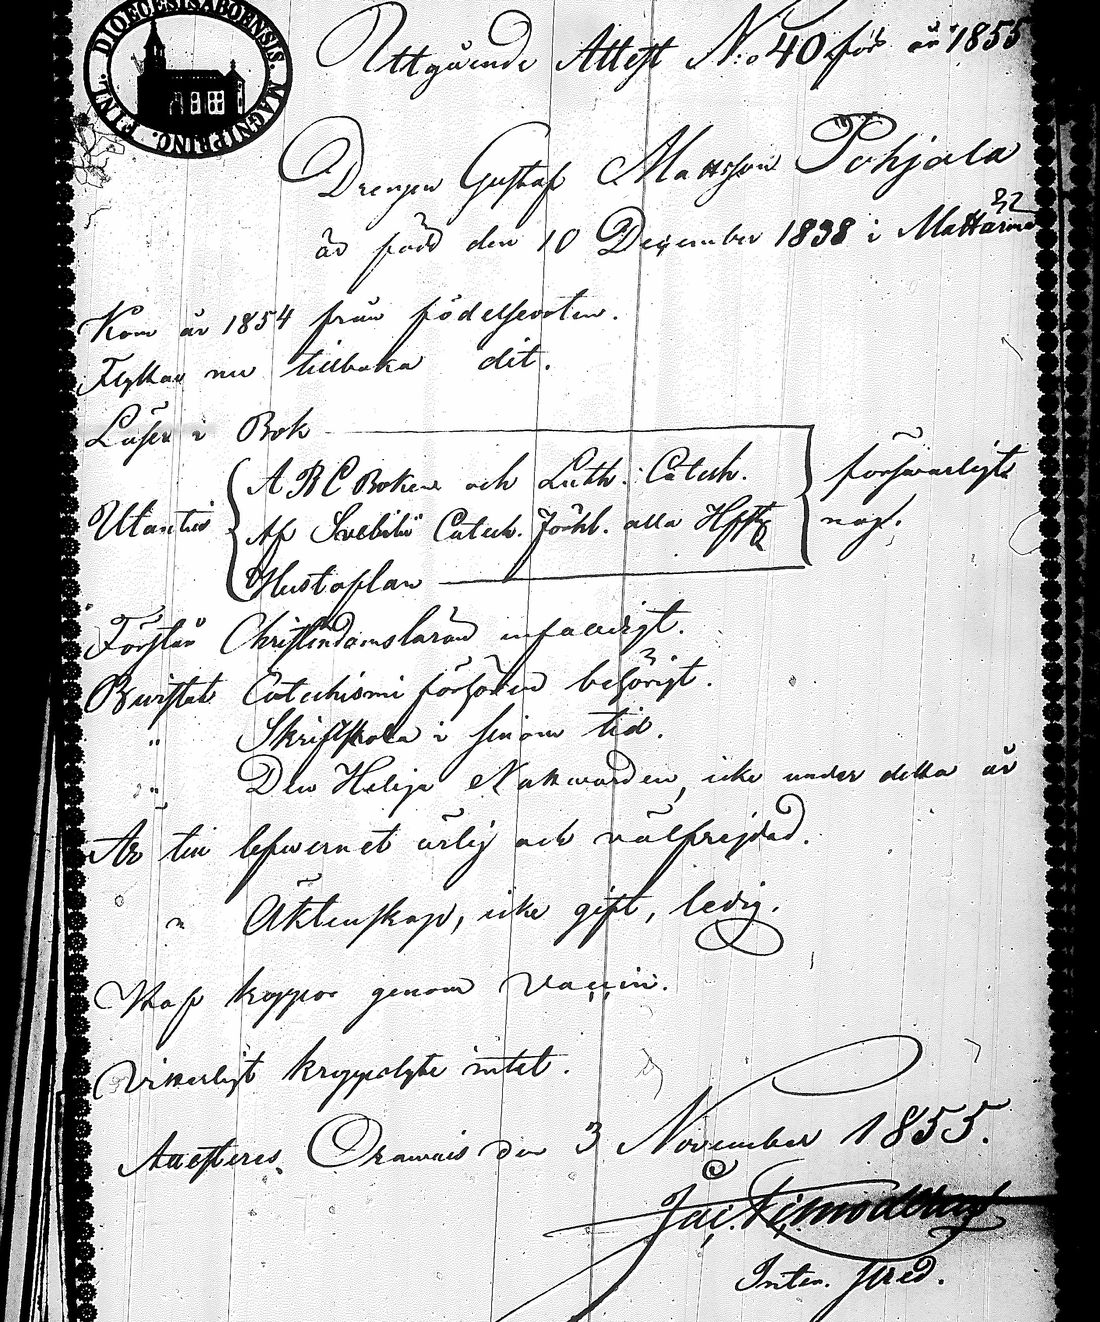 DIOECESIS ABOENSIS. MAGN: PRINC. FINL.
Utgående Attest N:o 40 för år 1855
Drengen Gustaf Mattsson Pohjala
är född den 10 December 1838 i
32
Kom år 1854 från födelseorten.
Flyttar nu tillbaka dit.
Läser i Bok
A B C Boken och Luth: Catech. försvarligt
Utantill Af Svebilii Catech. Förkl. alla Hfst nog.
Hustaflan
Förstår Christendomsläran enfaldigt.
Bevistat Catechismi förhören behörigt.
" Skriftskola i sinom tid.
" Den Heliga Nattvarden, icke under detta år
Är till lefvernet ärlig och välfrejdad.
" Äktenskap, icke gift, ledig.
Haft koppor genom Vaccin.
Vitterligt kroppslyte intet.
Attesteras, Orawais den 3 November 1855.
Jac.
Inter. pred.